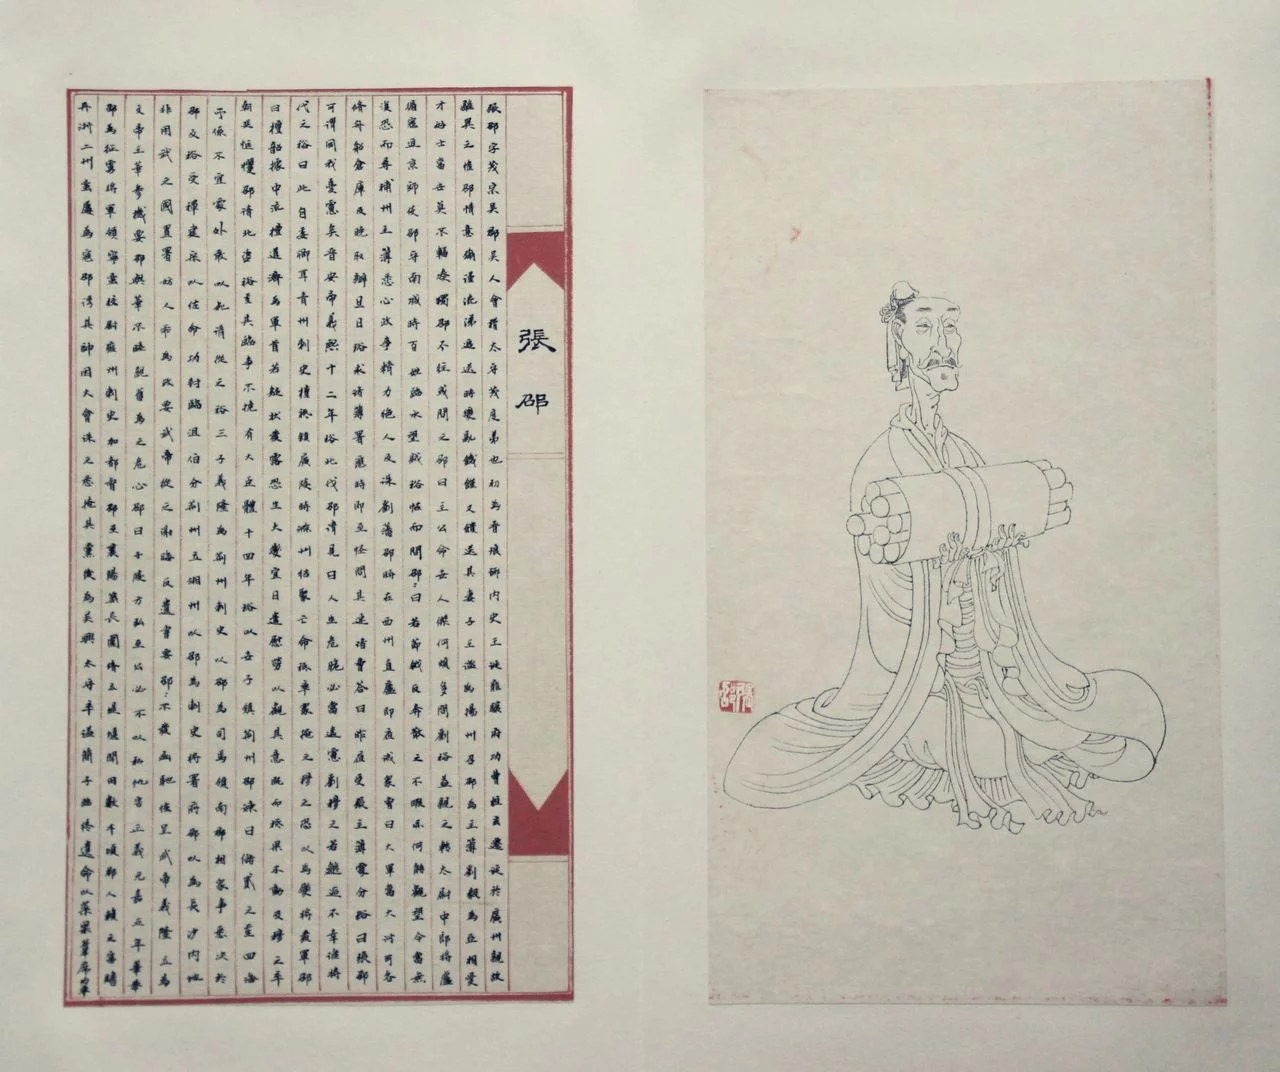 張邵
張邵字茂宗吳郡吳人會稽太守茂度弟也初為晉琅邪內史王誕龍驤府功曹桓玄遷誕於廣州親故
離異之惟邵情意彌謹流涕追送時變亂饑饉又饋送其妻子王謐為揚州召邵為主簿劉毅為亞相愛
才好士當世莫不輻湊獨邵不往或問之邵曰主公命世人傑何煩多問劉裕益親之轉太尉中郎將盧
循寇迫京師使邵守南城時百姓臨水望賊裕怪而問邵:曰若節鉞反奔散之不暇亦何能觀望今當無
復恐而尋補州主簿悉心政事精力絕人及誅劉藩邵時在西州直廬即夜誡眾曹曰大軍當大討可各
脩舟船倉庫及曉取辦旦日裕求諸簿署應時即至怪問其速諸曹答曰昨夜受張主簿處分裕曰張邵
可謂同我憂慮矣晉安帝義熙十二年裕北伐邵請見曰人生危脆必當遠慮劉穆之若邂逅不幸誰將
代之裕曰此自委卿耳青州刺史檀祗鎮廣陵時滁州結聚亡命祗率眾掩之穆之恐以為變將發軍邵
曰檀韶據中流檀道濟為軍首若疑狀發露恐生大變宜且遣慰勞以觀其意既而祗果不動及穆之卒
朝廷恇懼邵請北咨裕至其臨事不撓有大臣體十四年裕以世子鎮荊州邵諫曰儲貳之重四海
所係不宜處外敢以死請從之裕三子義隆為荊州刺史以邵為司馬領南郡相眾事悉決於
邵及裕受禪建宋以佐命功封臨沮伯分荊州立湘州以邵為刺史將署府邵以為長沙內地
非用武之國置署妨人乖為政要武帝從之謝晦反遺書要邵:不發函馳使呈武帝義隆立為
文帝王華參機要邵與華不睦親舊為之危心邵曰子陵方弘至公必不以私仇害正義元嘉五年華卒
邵為征虜將軍領寧蠻校尉雍州刺史加都督邵至襄陽築長圍脩立堤堰開田數千頃郡人賴之富贍
丹浙二州蠻屢為寇邵誘其帥因大會誅之悉掩其黨後為吳興太守卒謚簡子臨終遺命以菜果葦席